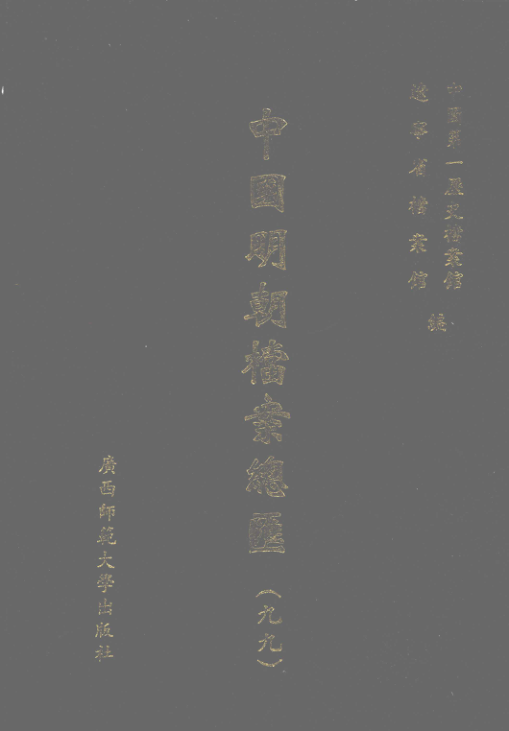 中國第一歷史檔案館
遼寧省檔案館
編
中國明朝檔案總匯
（九九）
廣西師範大學出版社